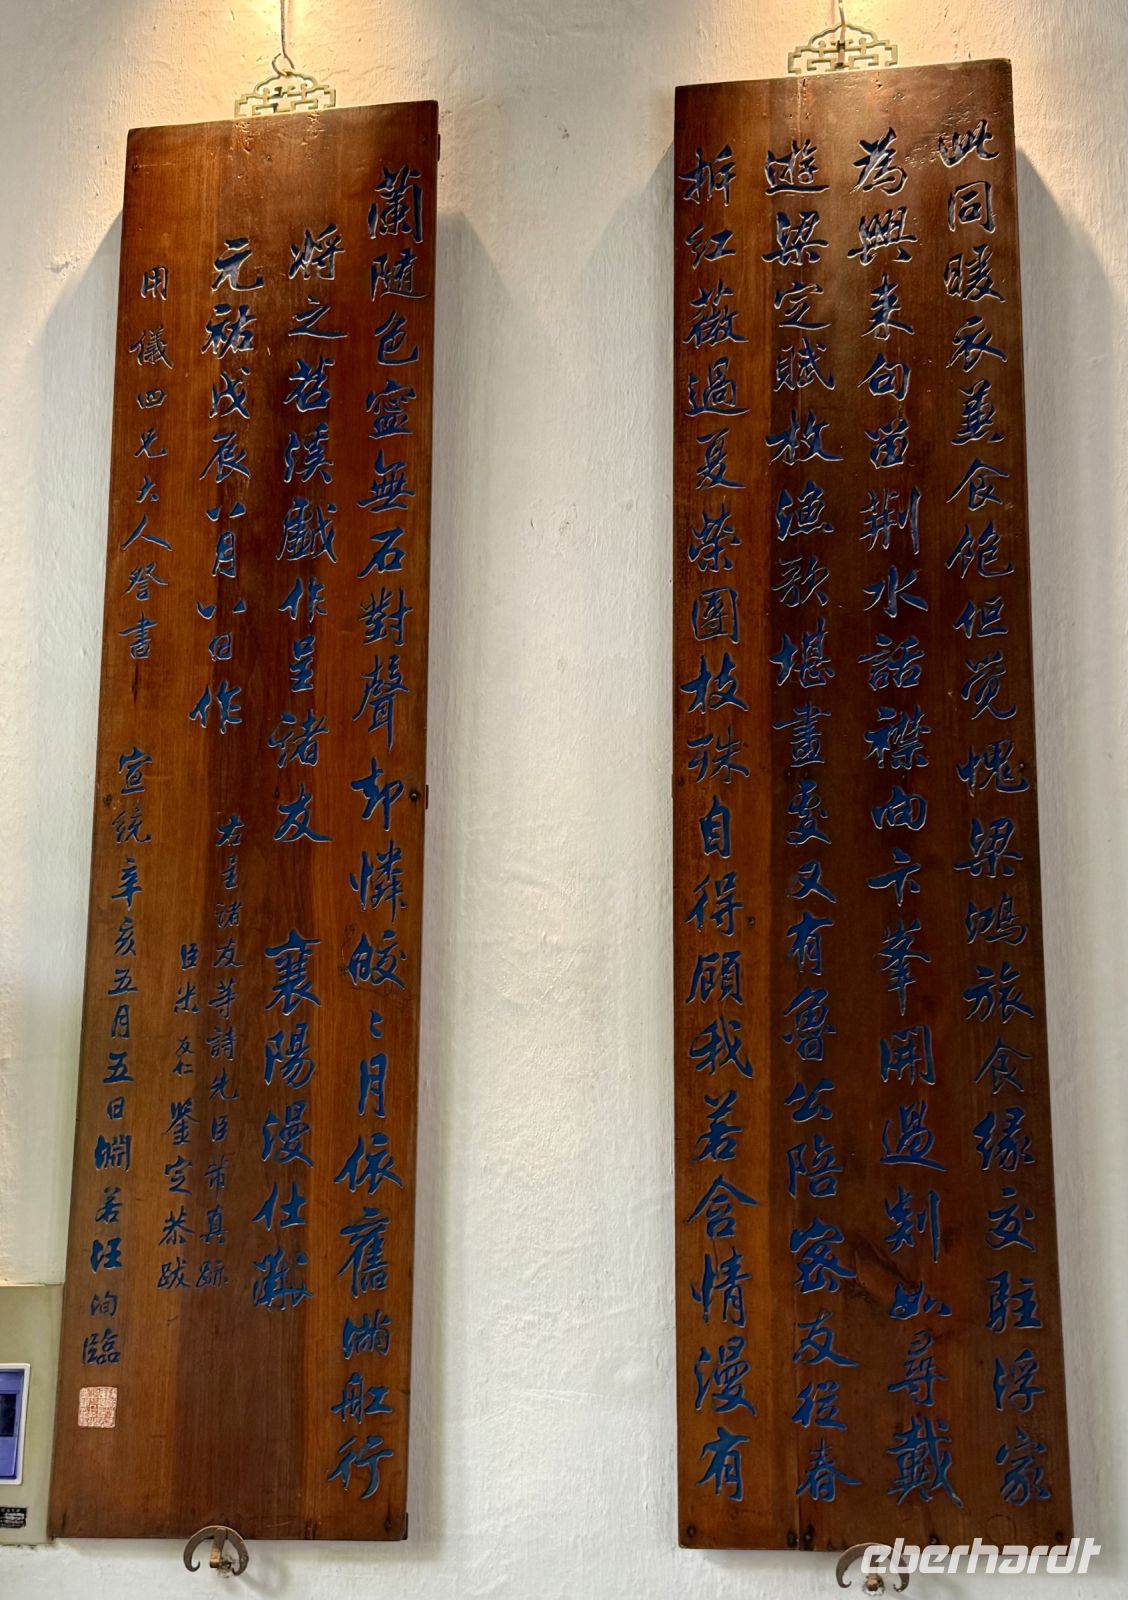 此同暖衣兼食飽但覺愧梁鴻旅食緣交駐浮家
為興來句留荆水話襟向卞峯開過剡如尋戴
遊梁定賦枚漁歌堪畫處又有魯公陪密友從春
拆紅薇過夏榮團枝殊自得顧我若含情漫有
蘭隨色寧無石對聲却憐皎〻月依舊滿舡行
將之苕溪戲作呈諸友 襄陽漫仕黻
元祐戊辰八月八日作
右呈諸友等詩先臣芾真跡
臣米友仁鑒定恭跋
用儀四兄大人督書 宣統辛亥五月五日淵若汪洵臨
eberhardt